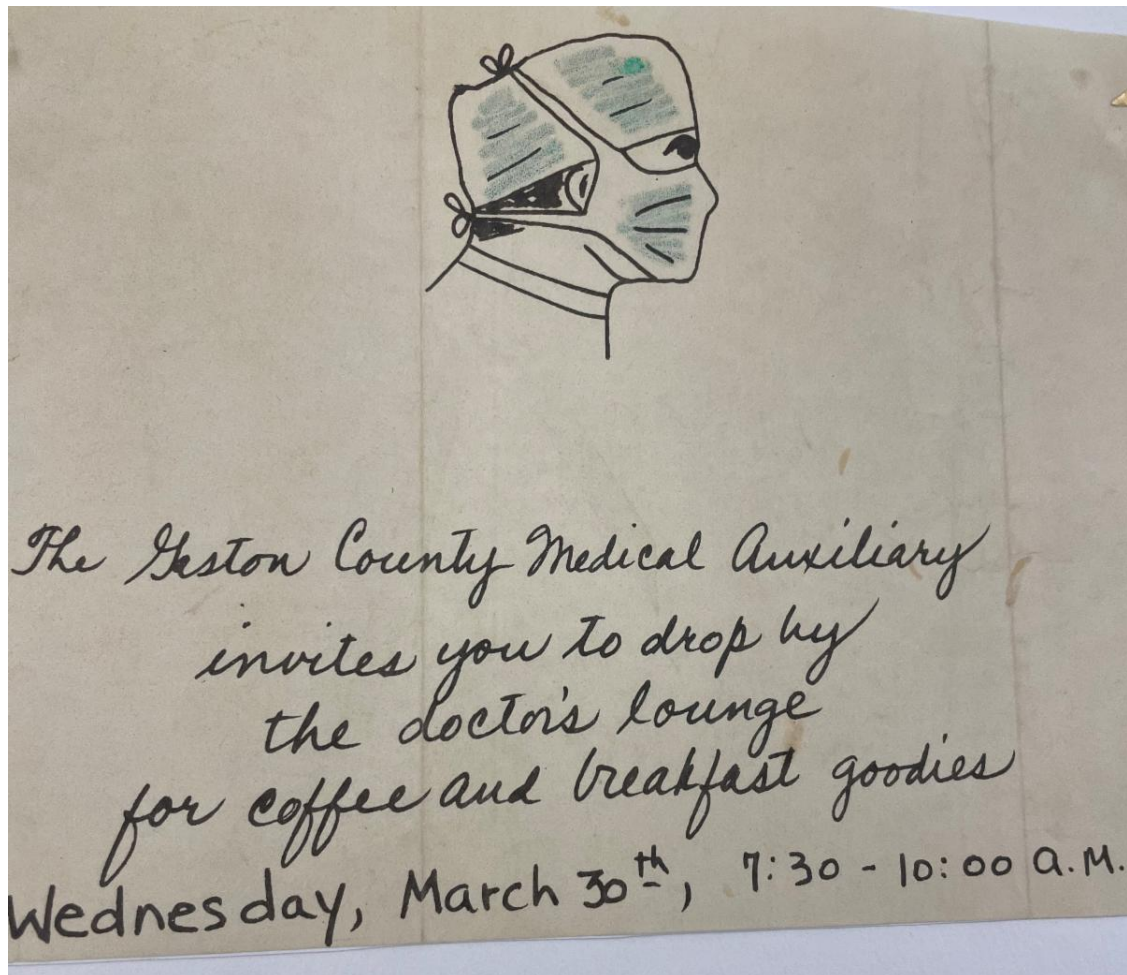 The Gaston County Medical Auxiliary
invites you to drop by
the doctor's lounge
for coffee and breakfast goodies
Wednesday, March 30th, 7:30 - 10:00 A.M.